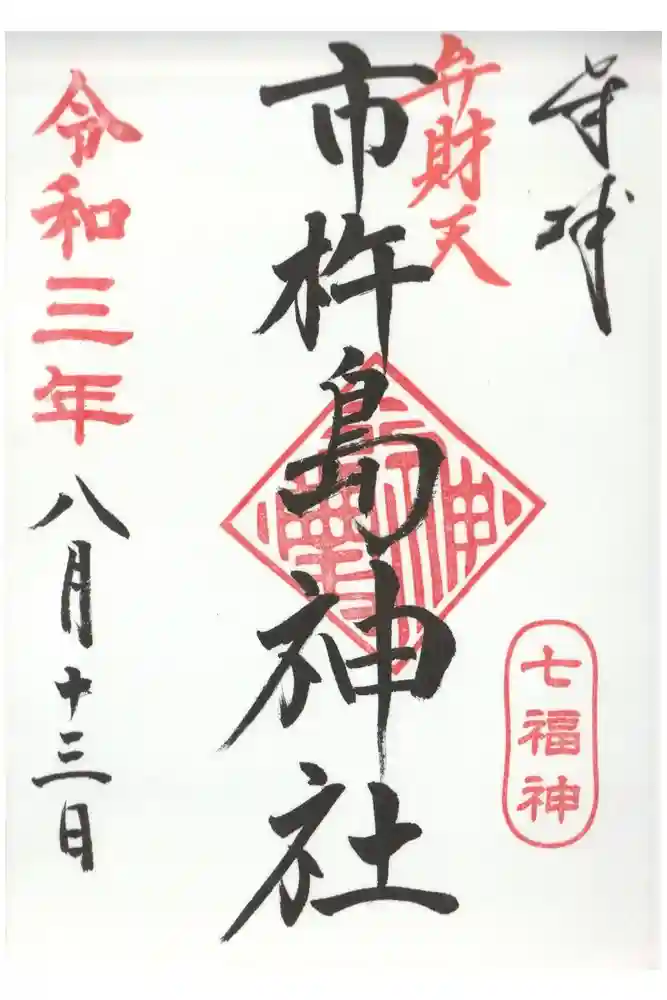 奉拝
弁財天
七福神
市杵島神社
令和三年八月十三日